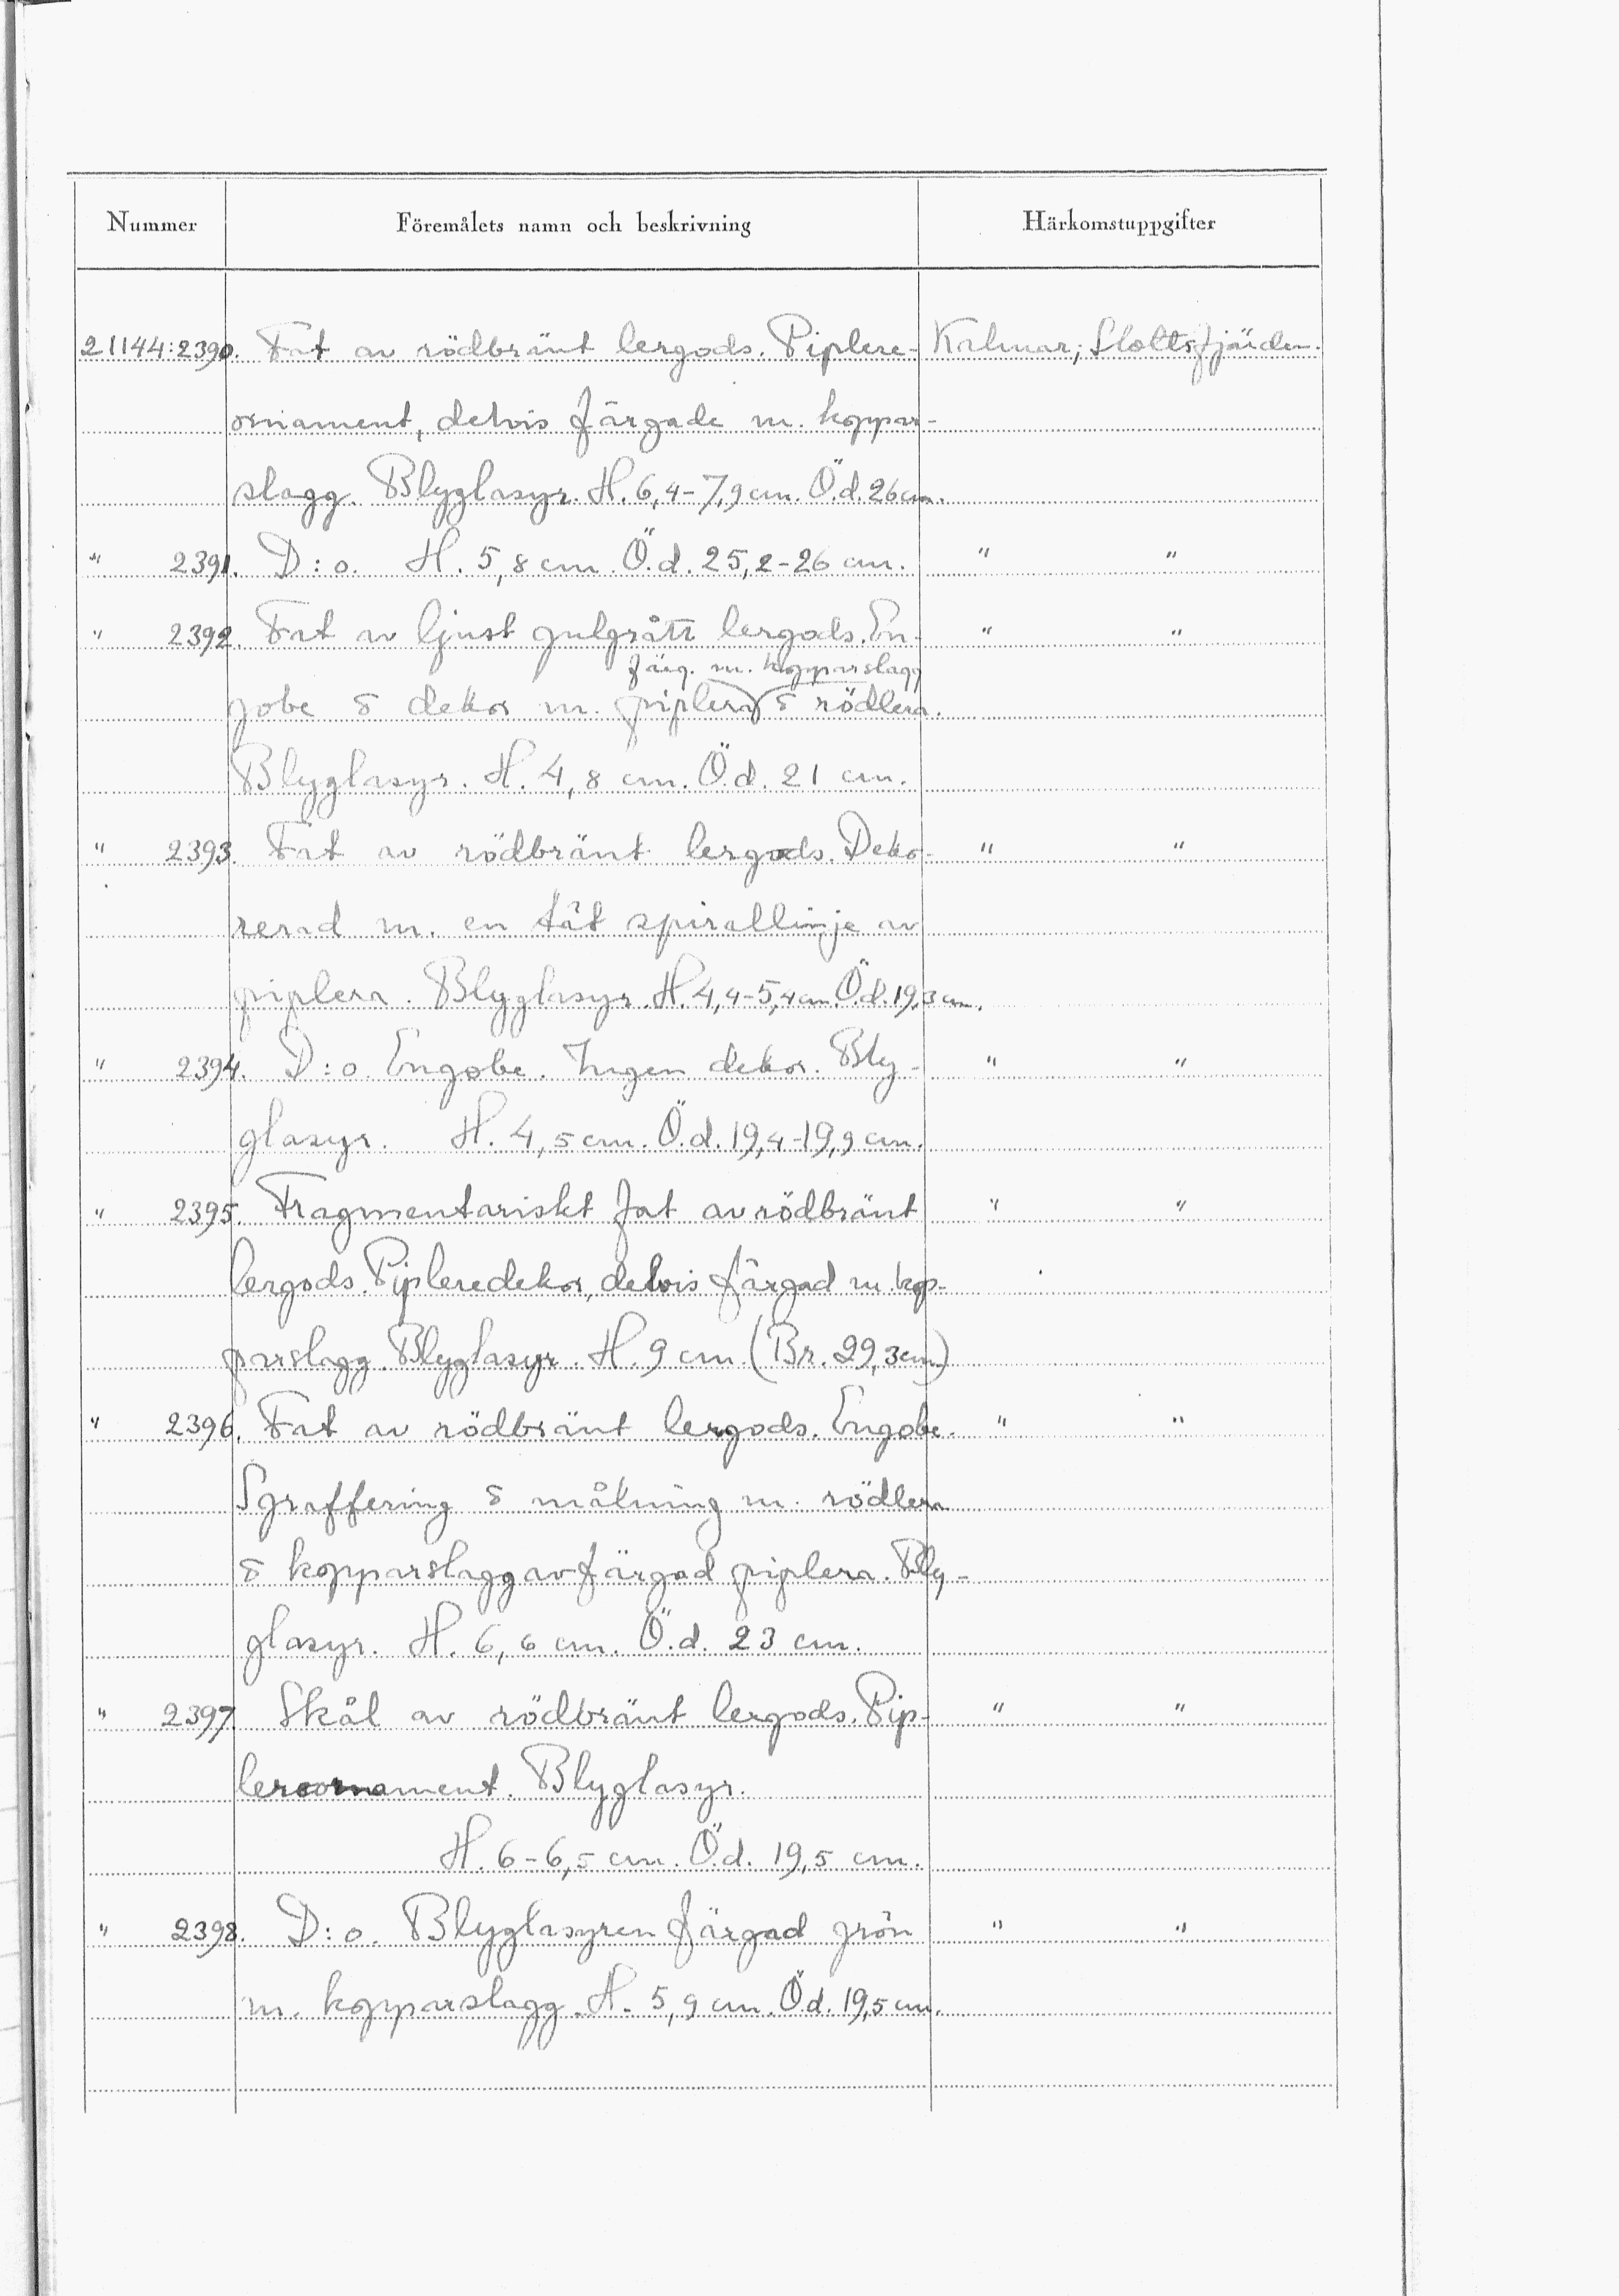 Nummer Föremålets namn och beskrivning Härkomstuppgifter
21144:2390. Fat av rödbränt lergods. Piplere- Kalmar; Slottsfjärden.
ornament, delvis färgade m. koppar-
slagg. Blyglasyr. H. 6,4-7,9 cm. Ö.d. 26 cm.
" 2391. D:o. H. 5,8 cm. Ö.d. 25,2-26 cm. " "
" 2392. Fat av ljust gulgrått lergods. En- " "
färg. m. kopparslagg
gobe & dekor m. piplera & rödlera.
Blyglasyr. H. 4,8 cm. Ö.d. 21 cm.
" 2393. Fat av rödbränt lergods. Deko- " "
rerad m. en tät spirallinje av
piplera. Blyglasyr. H. 4,4-5,4 cm. Ö.d. 19,3 cm.
" 2394. D:o. Engobe. Ingen dekor. Bly- " "
glasyr. H. 4,5 cm. Ö.d. 19,4-19,9 cm.
" 2395. Fragmentariskt fat av rödbränt " "
lergods. Pipleredekor, delvis färgad m. kop-
parslagg. Blyglasyr. H. 9 cm (Br. 29,3 cm)
" 2396. Fat av rödbränt lergods. Engobe. " "
Sgraffering & målning m. rödlera
& kopparslagg av färgad piplera. Bly-
glasyr. H. 6,6 cm. Ö.d. 23 cm.
" 2397 Skål av rödbränt lergods. Pip- " "
lereornament. Blyglasyr.
H. 6-6,5 cm. Ö.d. 19,5 cm.
" 2398. D:o. Blyglasyren färgad grön " "
m. kopparslagg. H. 5,9 cm. Ö.d. 19,5 cm.